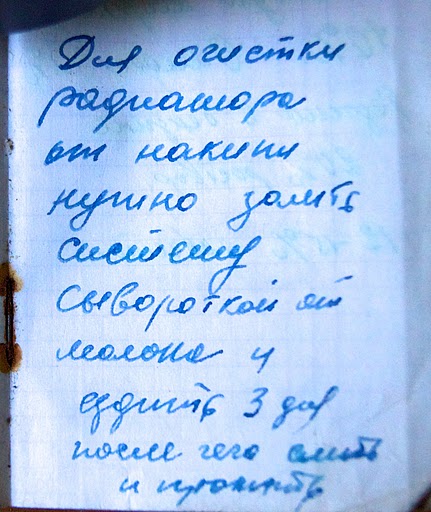 Для очистки
радиатора
от накипи
нужно залить
систему
сывороткой от
молока и
ездить 3 дня
после чего слить
и промыть